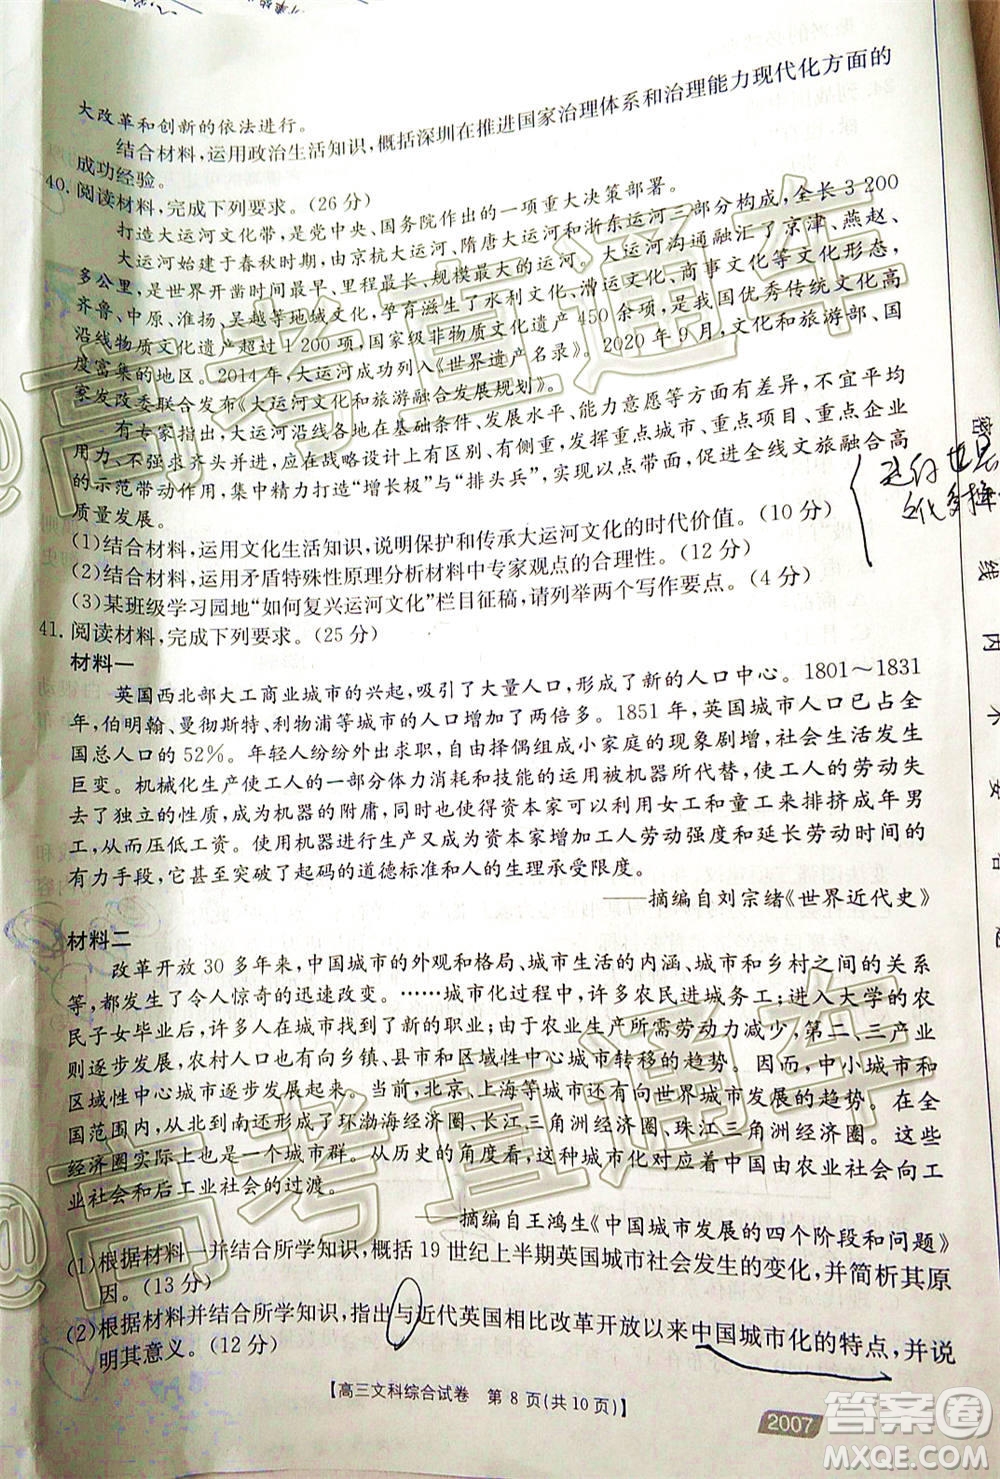 大改革和创新的依法进行。
结合材料,运用政治生活知识,概括深圳在推进国家治理体系和治理能力现代化方面的
成功经验。
40. 阅读材料,完成下列要求。(26 分)
打造大运河文化带,是党中央、国务院作出的一项重大决策部署。
大运河始建于春秋时期,由京杭大运河、隋唐大运河和浙东运河三部分构成,全长 3 200
多公里,是世界开凿时间最早、里程最长、规模最大的运河。大运河沟通融汇了京津、燕赵、
齐鲁、中原、淮扬、吴越等地域文化,孕育滋生了水利文化、漕运文化、商事文化等文化形态,
沿线物质文化遗产超过 1 200 项、国家级非物质文化遗产 450 余项,是我国优秀传统文化高
度富集的地区。2014 年,大运河成功列入《世界遗产名录》。2020 年 9 月,文化和旅游部、国
家发改委联合发布《大运河文化和旅游融合发展规划》。
有专家指出,大运河沿线各地在基础条件、发展水平、能力意愿等方面有差异,不宜平均
用力、不强求齐头并进,应在战略设计上有区别、有侧重,发挥重点城市、重点项目、重点企业
的示范带动作用,集中精力打造“增长极”与“排头兵”,以点带面,促进全线文旅融合高
质量发展。
(1)结合材料,运用文化生活知识,说明保护和传承大运河文化的时代价值。(10 分)
(2)结合材料,运用矛盾特殊性原理分析材料中专家观点的合理性。(12 分)
(3)某班级学习园地“如何复兴运河文化”栏目征稿,请列举两个写作要点。(4 分)
41. 阅读材料,完成下列要求。(25 分)
材料一
英国西北部大工商业城市的兴起,吸引了大量人口,形成了新的人口中心。1801～1831
年,伯明翰、曼彻斯特、利物浦等城市的人口增加了两倍多。1851 年,英国城市人口已占全
国总人口的 52%。年轻人纷纷外出求职,自由择偶组成小家庭的现象剧增,社会生活发生
巨变。机械化生产使工人的一部分体力消耗和技能的运用被机器所代替,使工人的劳动失
去了独立的性质,成为机器的附庸,同时使得资本家得以利用女工和童工来排挤成年男
工,从而压低工资。使用机器进行生产又成为资本家增加工人劳动强度和延长劳动时间的最
有力手段,它突破了起码的道德标准和人的生理承受限度。
——摘编自刘宗绪《世界近代史》
材料二
改革开放 30 多年来,中国城市的外观和格局、城市生活的内涵、城市和乡村之间的关系
等,都发生了令人惊奇的迅速改变。……城市化过程中,许多农民进城务工;进入大学的农
民子女毕业后,许多人在城市找到了新的职业;由于农业生产所需劳动力减少,第二、三产业
则迅速发展,农村人口也有向乡镇、县市和区域性中心城市转移的趋势。因而,中小城市和
区域性中心城市迅速发展起来。当前,北京、上海等城市还有向世界城市发展的趋势。在全
国范围内,从北到南还形成了环渤海经济圈、长江三角洲经济圈、珠江三角洲经济圈。这些
经济圈实际上也是不同的城市群。从历史的角度看,这种城市化对应着中国由农业社会向工
业社会和后工业社会的过渡。
——摘编自王鸿生《中国城市发展的四个阶段和问题》
(1)根据材料一并结合所学知识,概括 19 世纪上半期英国城市社会发生的变化,并简析其原
因。(13 分)
(2)根据材料并结合所学知识,指出与近代英国相比改革开放以来中国城市化的特点,并说
明其意义。(12 分)
【高三文科综合试卷 第 8 页(共 10 页)】
2007
密
线
内
不
要
答
题
@高考直通车
@高考直通车
答案圈
MXQE.COM